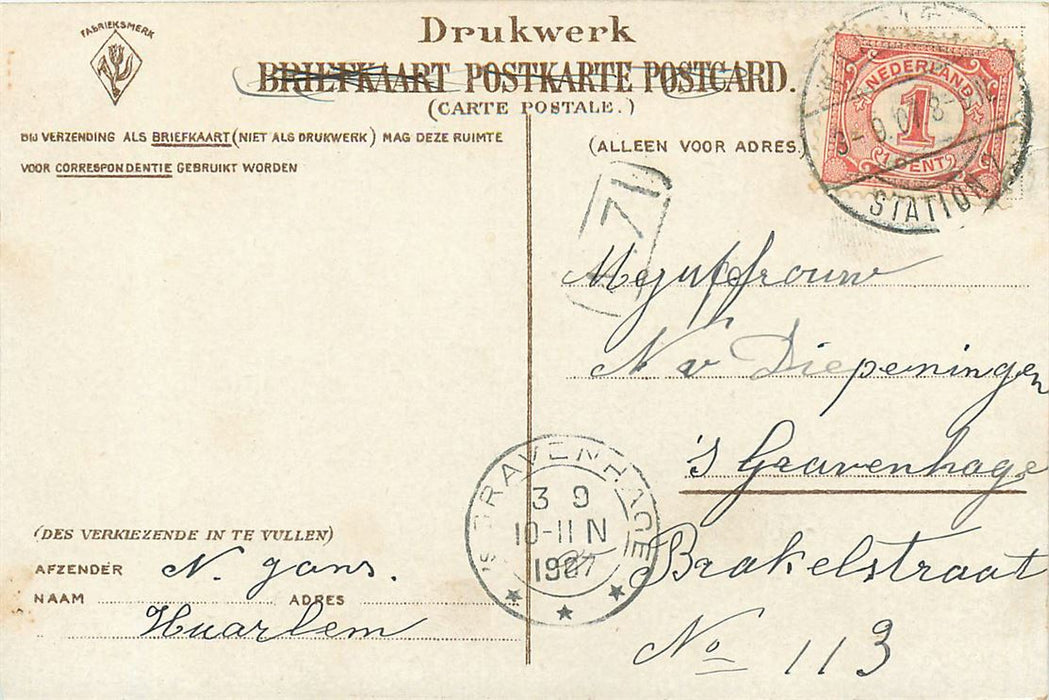 FABRIEKSMERK
Drukwerk
BRIEFKAART POSTKARTE POSTCARD.
(CARTE POSTALE.)
BIJ VERZENDING ALS BRIEFKAART (NIET ALS DRUKWERK) MAG DEZE RUIMTE
VOOR CORRESPONDENTIE GEBRUIKT WORDEN
(ALLEEN VOOR ADRES
NEDERLAND
1
1 CENT
STATION
71
Mejuffrouw
N v Diepeningen
's Gravenhage
Brakelstraat
No 113
'S GRAVENHAGE
3 9
10-11 N
1907
(DES VERKIEZENDE IN TE VULLEN)
AFZENDER N. gans.
NAAM ADRES
Haarlem